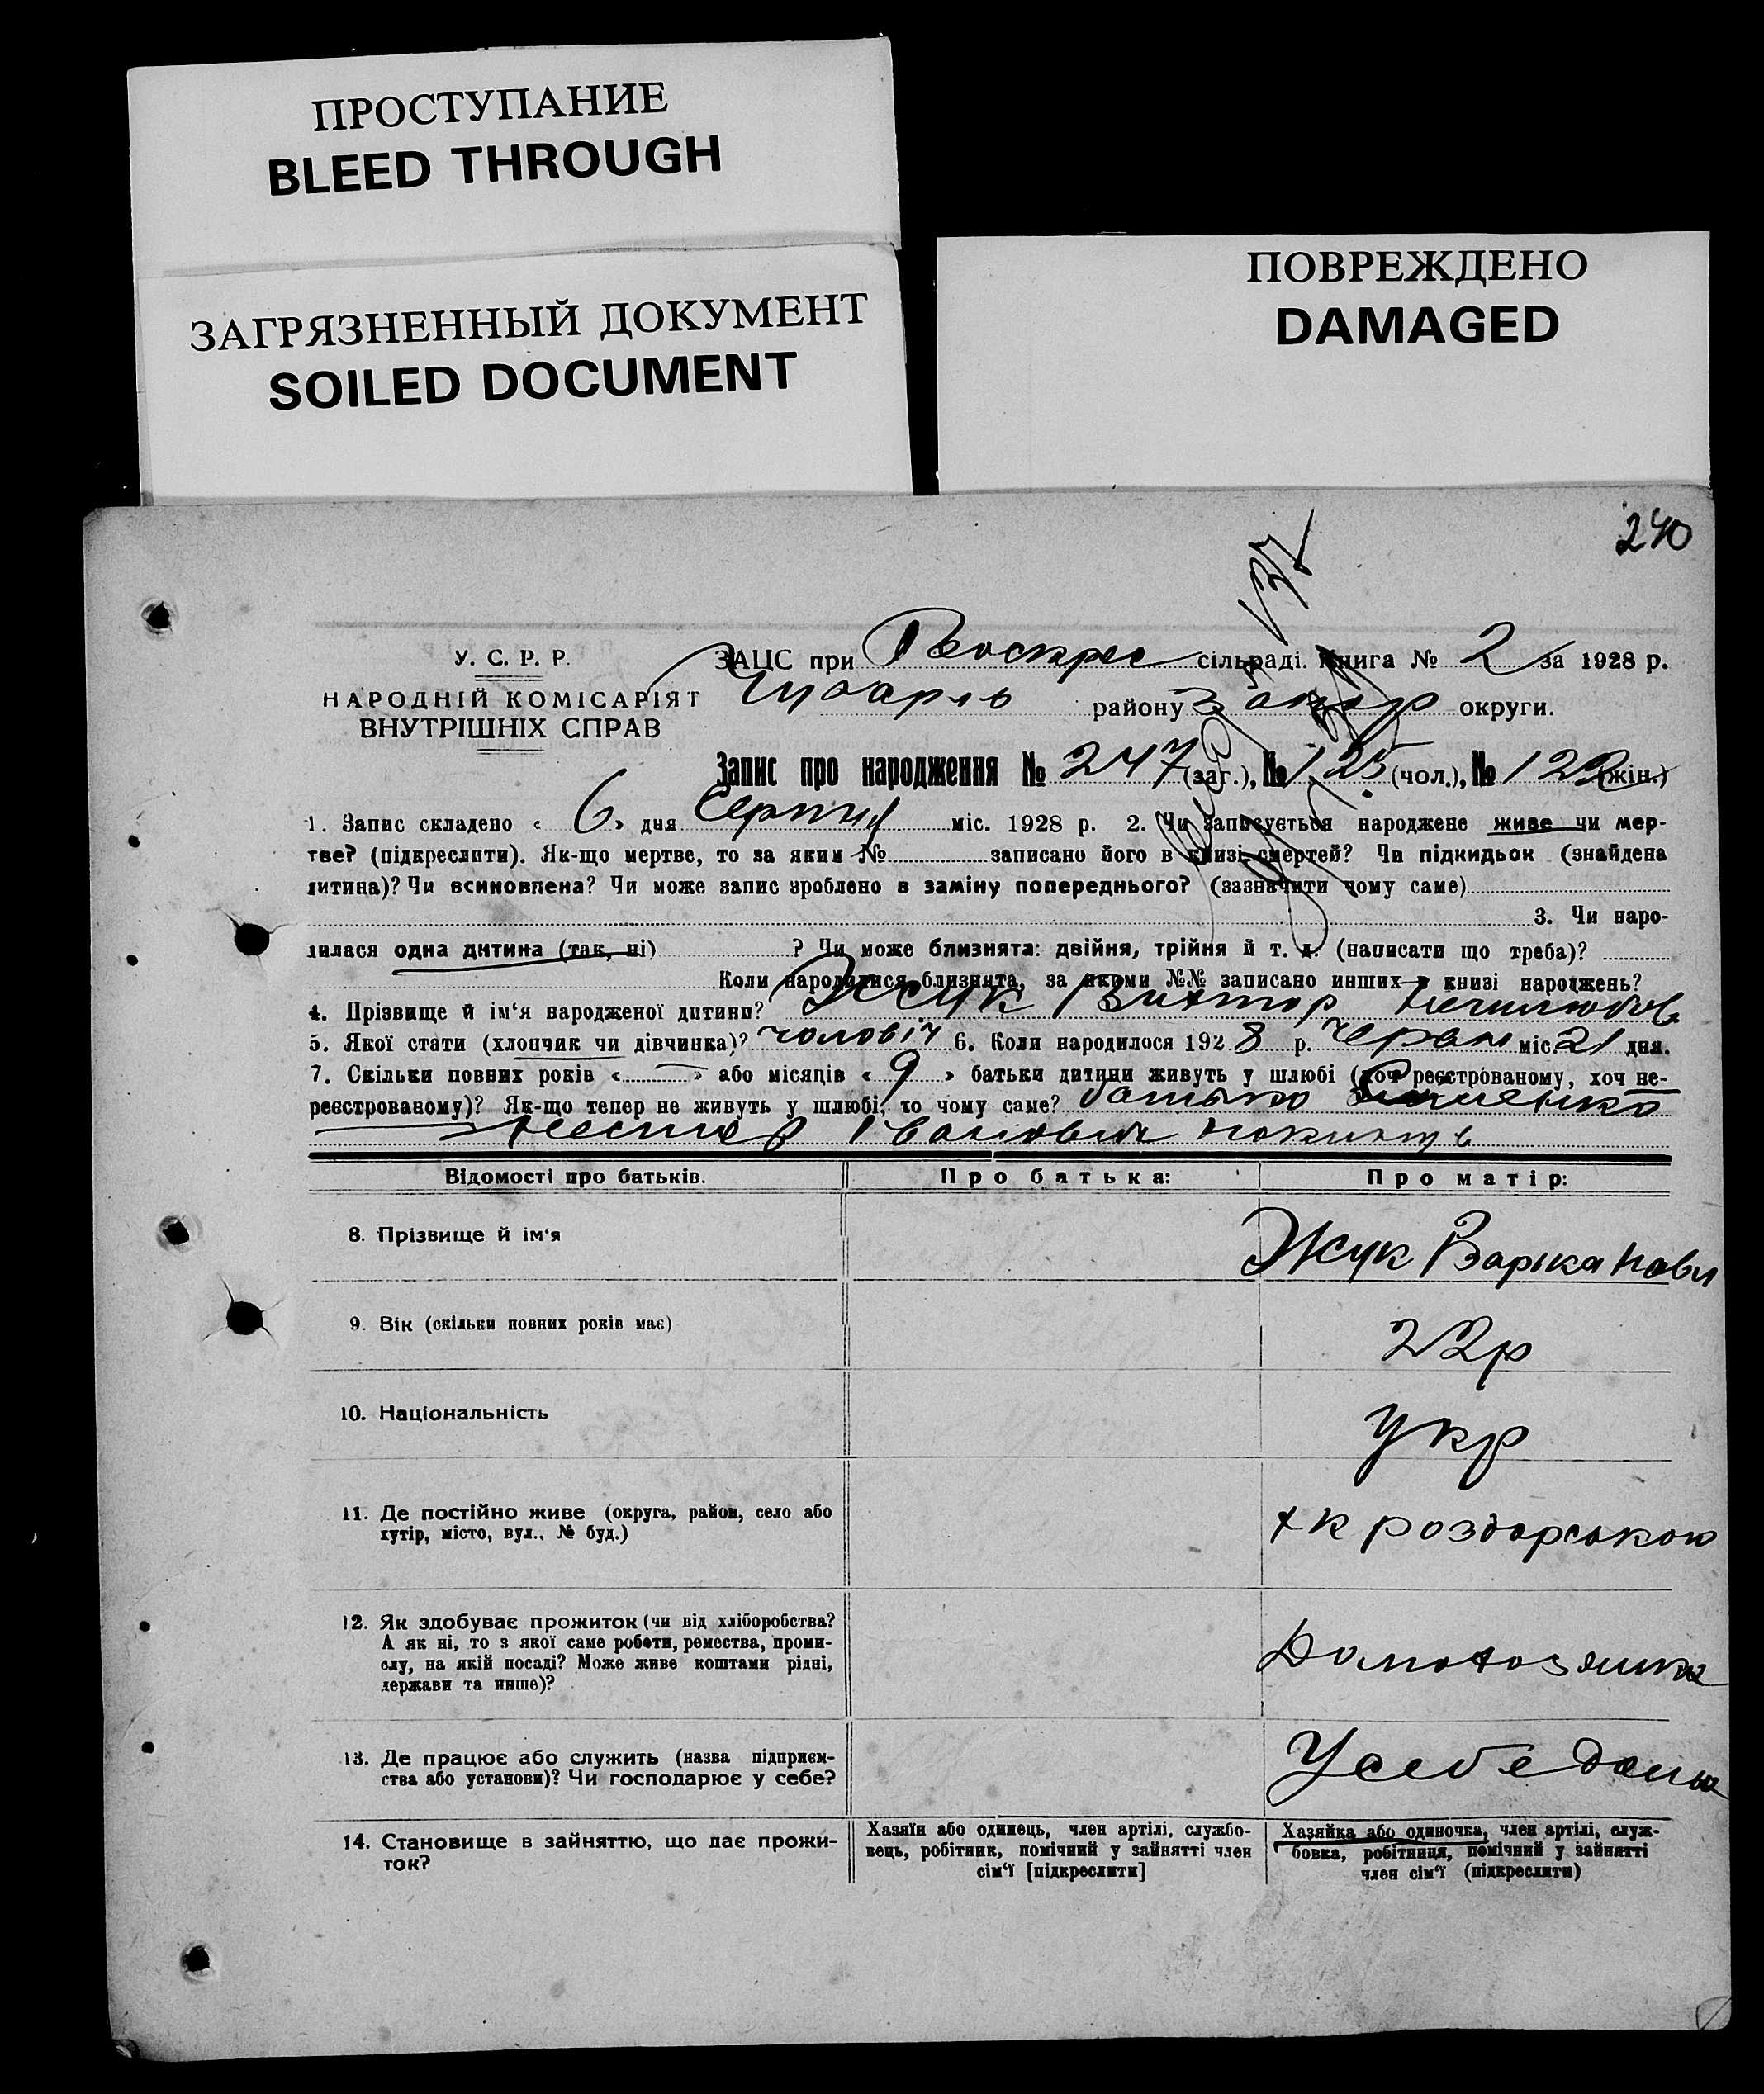 ПРОСТУПАНИЕ
BLEED THROUGH
ЗАГРЯЗНЕННЫЙ ДОКУМЕНТ
SOILED DOCUMENT
ПОВРЕЖДЕНО
DAMAGED
240
У. С. Р. Р.
НАРОДНІЙ КОМІСАРІЯТ
ВНУТРІШНІХ СПРАВ
ЗАЦС при Воскрес сільраді. Книга № 2 за 1928 р.
Чубарів району Запор округи.
Запис про народження № 247 (заг.), № 125 (чол.), № 122 (жін.)
1. Запис складено « 6 » дня Серпня міс. 1928 р. 2. Чи записується народжене живе чи мер-
тве? (підкреслити). Як-що мертве, то за яким № записано його в книзі смертей? Чи підкидьок (знайдена
дитина)? Чи всиновлена? Чи може запис зроблено в заміну попереднього? (зазначити чому саме)
3. Чи наро-
дилася одна дитина (так, ні) ? Чи може близнята: двійня, трійня й т. д. (написати що треба)?
Коли народилися близнята, за якими №№ записано инших в книзі народжень?
4. Прізвище й ім'я народженої дитини? Жук Виктор
5. Якої стати (хлопчик чи дівчинка)? чоловіч 6. Коли народилося 1928 р. Червн міс. 21 дня.
7. Скільки повних років « — » або місяців « 9 » батьки дитини живуть у шлюбі (хоч реєстрованому, хоч не-
реєстрованому)? Як-що тепер не живуть у шлюбі, то чому саме? батько
Іванович покинув
Відомості про батьків.
Про батька:
Про матір:
8. Прізвище й ім'я
Жук Варька Павл
9. Вік (скільки повних років має)
22р
10. Національність
Укр
11. Де постійно живе (округа, район, село або
хутір, місто, вул., № буд.)
12. Як здобуває прожиток (чи від хліборобства?
А як ні, то з якої саме роботи, ремества, проми-
слу, на якій посаді? Може живе коштами рідні,
держави та инше)?
Домохозяика
13. Де працює або служить (назва підприєм-
ства або установи)? Чи господарює у себе?
У себе дома
14. Становище в зайняттю, що дає прожи-
ток?
Хазяїн або одинець, член артілі, службо-
вець, робітник, помічний у зайнятті член
сім'ї [підкреслити]
Хазяйка або одиночка, член артілі, служ-
бовка, робітниця, помічний у зайнятті
член сім'ї (підкреслити)